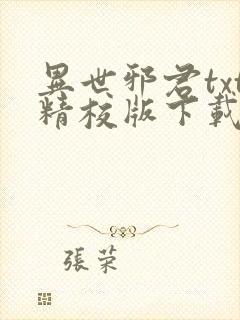 異世邪君txt
精校版下載
張荣